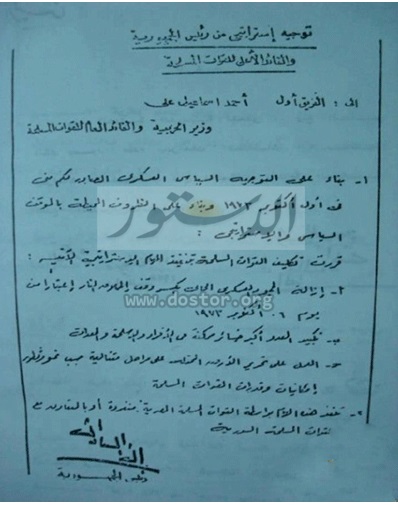 توجيه إستراتيجى من رئيس الجمهورية
والقائد الأعلى للقوات المسلحة
إلى : الفريق أول أحمد اسماعيل على
وزير الحربية والقائد العام للقوات المسلحة
١- بناء على التوجيه السياسى العسكرى الصادر لكم منى
فى أول أكتوبر ١٩٧٣ وبناء على الظروف المحيطة بالموقف
السياسى والإستراتيجى :
قررت تكليف القوات المسلحة بتنفيذ المهام الإستراتيجية الآتية :
٢- إزالة الجمود العسكرى الحالى بكسر وقف إطلاق النار إعتبارا من
يوم ٦ أكتوبر ١٩٧٣
ب- تكبيد العدو أكبر خسائر ممكنة من الأفراد والأسلحة والمعدات
ح- العمل على تحرير الأرض المحتلة على مراحل متتالية حسب نمو وتطور
إمكانيات وقدرات القوات المسلحة
٢- تنفذ هذه المهام بواسطة القوات المسلحة المصرية منفردة أو بالتعاون مع
القوات المسلحة السورية
أنور السادات
رئيس الجمهورية
الدستور
www.dostor.org